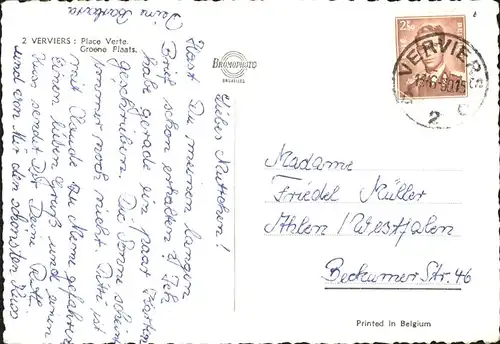 2 VERVIERS : Place Verte.
Groene Plaats.
BROMOPHOTO
BRUXELLES
Liebes Muttchen!
Hast Du meinen langen
Brief schon erhalten? Ich
habe gerade ein paar Karten
geschrieben. Die Sonne scheint
immer noch nicht. Putzi ist
mit Claude zu Meme gefahren.
Einen lieben Gruß und einen
Kuss sendet Dir Deine
und an Mit den schönsten
Deine Barbara
2F50
VERVIERS
2
Madame
Friedel Müller
Ahlen/Westfalen
Beckumer Str. 46
Printed in Belgium